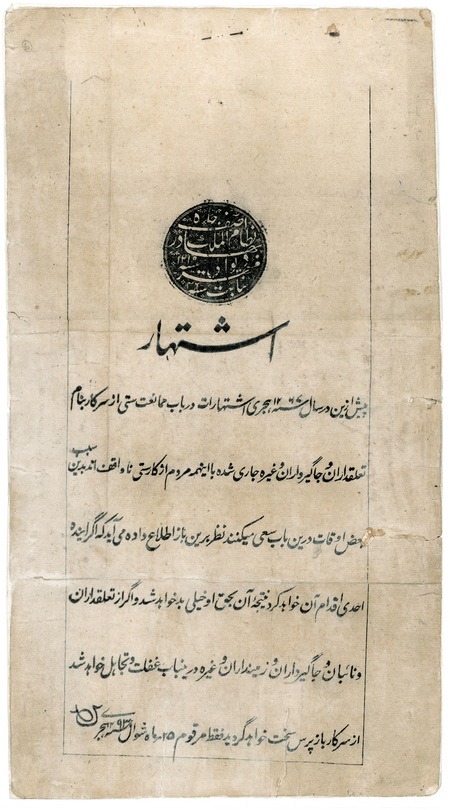 آصف جاه
نظام الملک
بهادر
اشتهار
پیش ازین در سال سنه ۱۲۶۷ هجری اشتهارات در باب ممانعت ستی از سرکار بنام
تعلقداران و جاگیرداران و غیره جاری شده با اینهمه مردم از کار ستی ناواقف اند بدین سبب
بعض اوقات درین باب سعی میکنند نظر برین باز اطلاع داده می آید که اگر آینده
احدی اقدام آن خواهد کرد نتیجهٔ آن بحق او خیلی بد خواهد شد و اگر از تعلقداران
و نائبان و جاگیرداران و زمینداران و غیره درینباب غفلت و تجاهل خواهد شد
از سرکار باز پرس سخت خواهد گردید فقط مرقوم ۲۵ ماه شوال سنه ۱۲۹۳ هجری